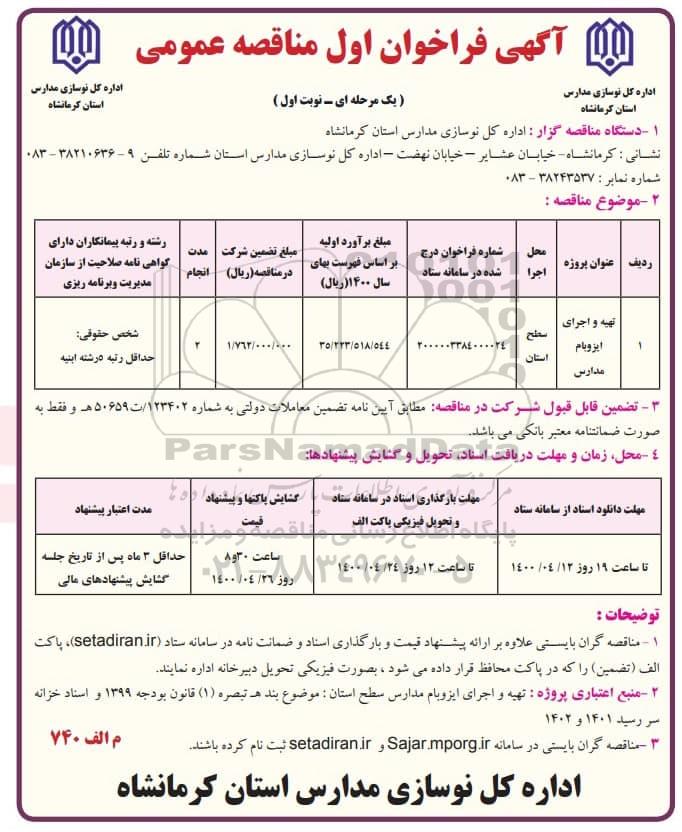 آگهی فراخوان اول مناقصه عمومی
( یک مرحله ای – نوبت اول )
اداره کل نوسازی مدارس
استان کرمانشاه
اداره کل نوسازی مدارس
استان کرمانشاه
۱ -دستگاه مناقصه گزار : اداره کل نوسازی مدارس استان کرمانشاه
نشـانی : کرمانشـاه- خیابـان عشـایر – خیابان نهضت – اداره کل نوسـازی مدارس اسـتان شـماره تلفـن ۹ - ۳۸۲۱۰۶۳۶ - ۰۸۳
شماره نمابر : ۳۸۲۴۳۵۳۷ - ۰۸۳
۲ -موضوع مناقصه :
ردیف
عنوان پروژه
محل اجرا
شماره فراخوان درج شده در سامانه ستاد
مبلغ برآورد اولیه بر اساس فهرست بهای سال ۱۴۰۰(ریال)
مبلغ تضمین شرکت درمناقصه(ریال)
مدت انجام
رشته و رتبه پیمانکاران دارای گواهی نامه صلاحیت از سازمان مدیریت وبرنامه ریزی
۱
تهیه و اجرای ایزوبام مدارس
سطح استان
۲۰۰۰۰۰۳۳۸۴۰۰۰۰۲۴
۳۵/۲۲۳/۵۱۸/۵۴۴
۱/۷۶۲/۰۰۰/۰۰۰
۲
شخص حقوقی:
حداقل رتبه ۵رشته ابنیه
۳ - تضمین قابل قبول شـرکت در مناقصه: مطابق آیین نامه تضمین معاملات دولتی به شماره ۱۲۳۴۰۲/ت۵۰۶۵۹هـ و فقط به
صورت ضمانتنامه معتبر بانکی می باشد.
۴ -محل، زمان و مهلت دریافت اسناد، تحویل و گشایش پیشنهادها:
مهلت دانلود اسناد از سامانه ستاد
مهلت بارگذاری اسناد در سامانه ستاد و تحویل فیزیکی پاکت الف
گشایش پاکتها و پیشنهاد قیمت
مدت اعتبار پیشنهاد
تا ساعت ۱۹ روز ۱۲/ ۰۴/ ۱۴۰۰
تا ساعت ۱۲ روز ۲۴/ ۰۴/ ۱۴۰۰
ساعت ۳۰و۸
روز ۲۶/ ۰۴/ ۱۴۰۰
حداقل ۳ ماه پس از تاریخ جلسه گشایش پیشنهادهای مالی
ParsNamadData
پایگاه اطلاع رسانی مناقصه و مزایده
۰۲۱-۸۸۳۴۹۶۷۰-۵
توضیحات :
۱ - مناقصه گران بایستی علاوه بر ارائه پیشـنهاد قیمت و بارگذاری اسناد و ضمانت نامه در سامانه ستاد (setadiran.ir)، پاکت
الف (تضمین) را که در پاکت محافظ قرار داده می شود ، بصورت فیزیکی تحویل دبیرخانه اداره نمایند.
۲ -منبع اعتباری پروژه : تهیه و اجرای ایزوبام مدارس سطح استان : موضوع بند هـ تبصره (۱) قانون بودجه ۱۳۹۹ و اسناد خزانه
سر رسید ۱۴۰۱ و ۱۴۰۲
۳ -مناقصه گران بایستی در سامانه Sajar.mporg.ir و setadiran.ir ثبت نام کرده باشند.
م الف ۷۴۰
اداره کل نوسازی مدارس استان کرمانشاه